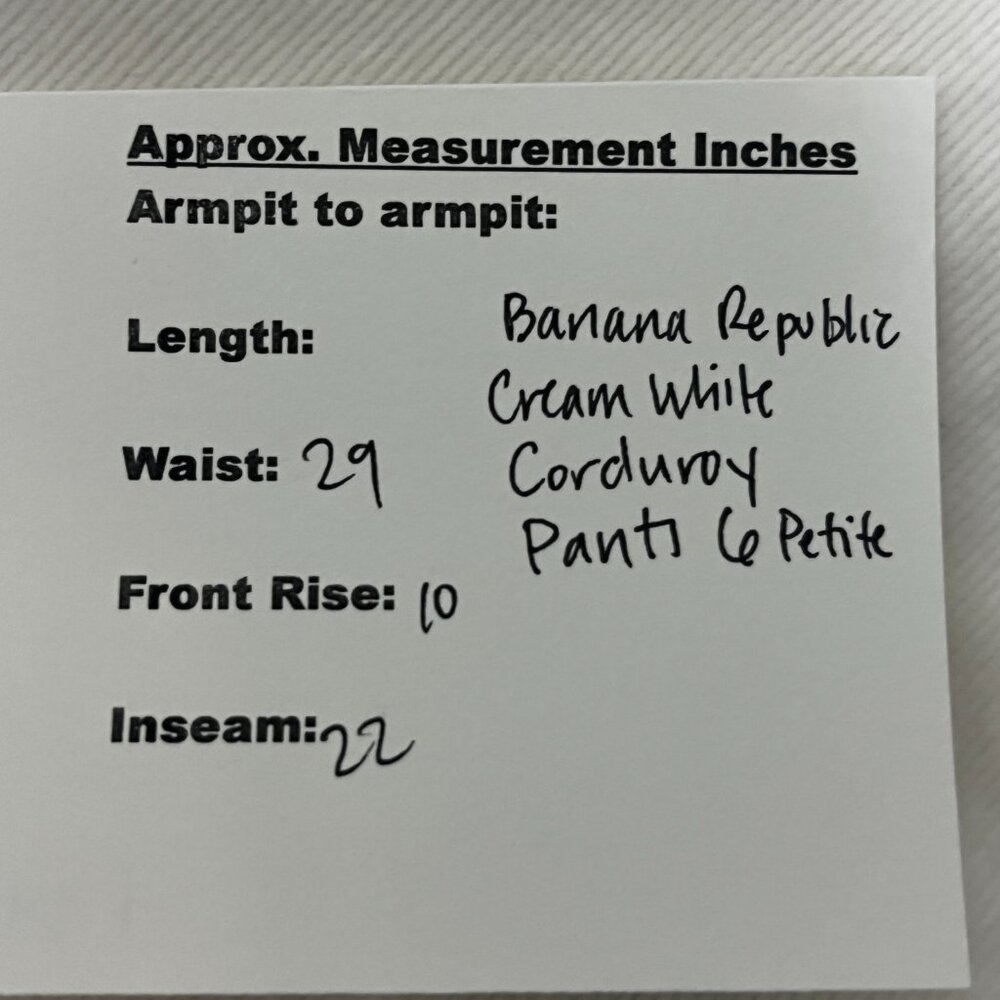 Approx. Measurement Inches
Armpit to armpit:
Length:
Banana Republic
Cream White
Waist: 29
Corduroy
Pants 6 Petite
Front Rise: 10
Inseam: 22